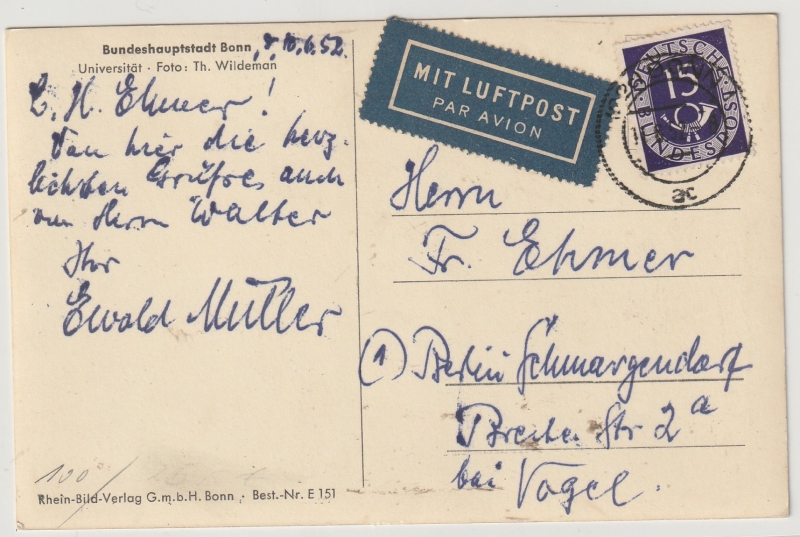 Bundeshauptstadt Bonn, d. 10.6.52.
Universität · Foto: Th. Wildeman
L. H. Ehmer!
Von hier die herz-
lichsten Grüsse auch
von Herrn Walter
Ihr
Ewald Müller
100/
Rhein-Bild-Verlag G.m.b.H. Bonn · Best.-Nr. E 151
MIT LUFTPOST
PAR AVION
DEUTSCHE
15
BUNDESPOST
ac
Herrn
Fr. Ehmer
(1) Berlin Schmargendorf
Breite Str 2a
bei Vogel.